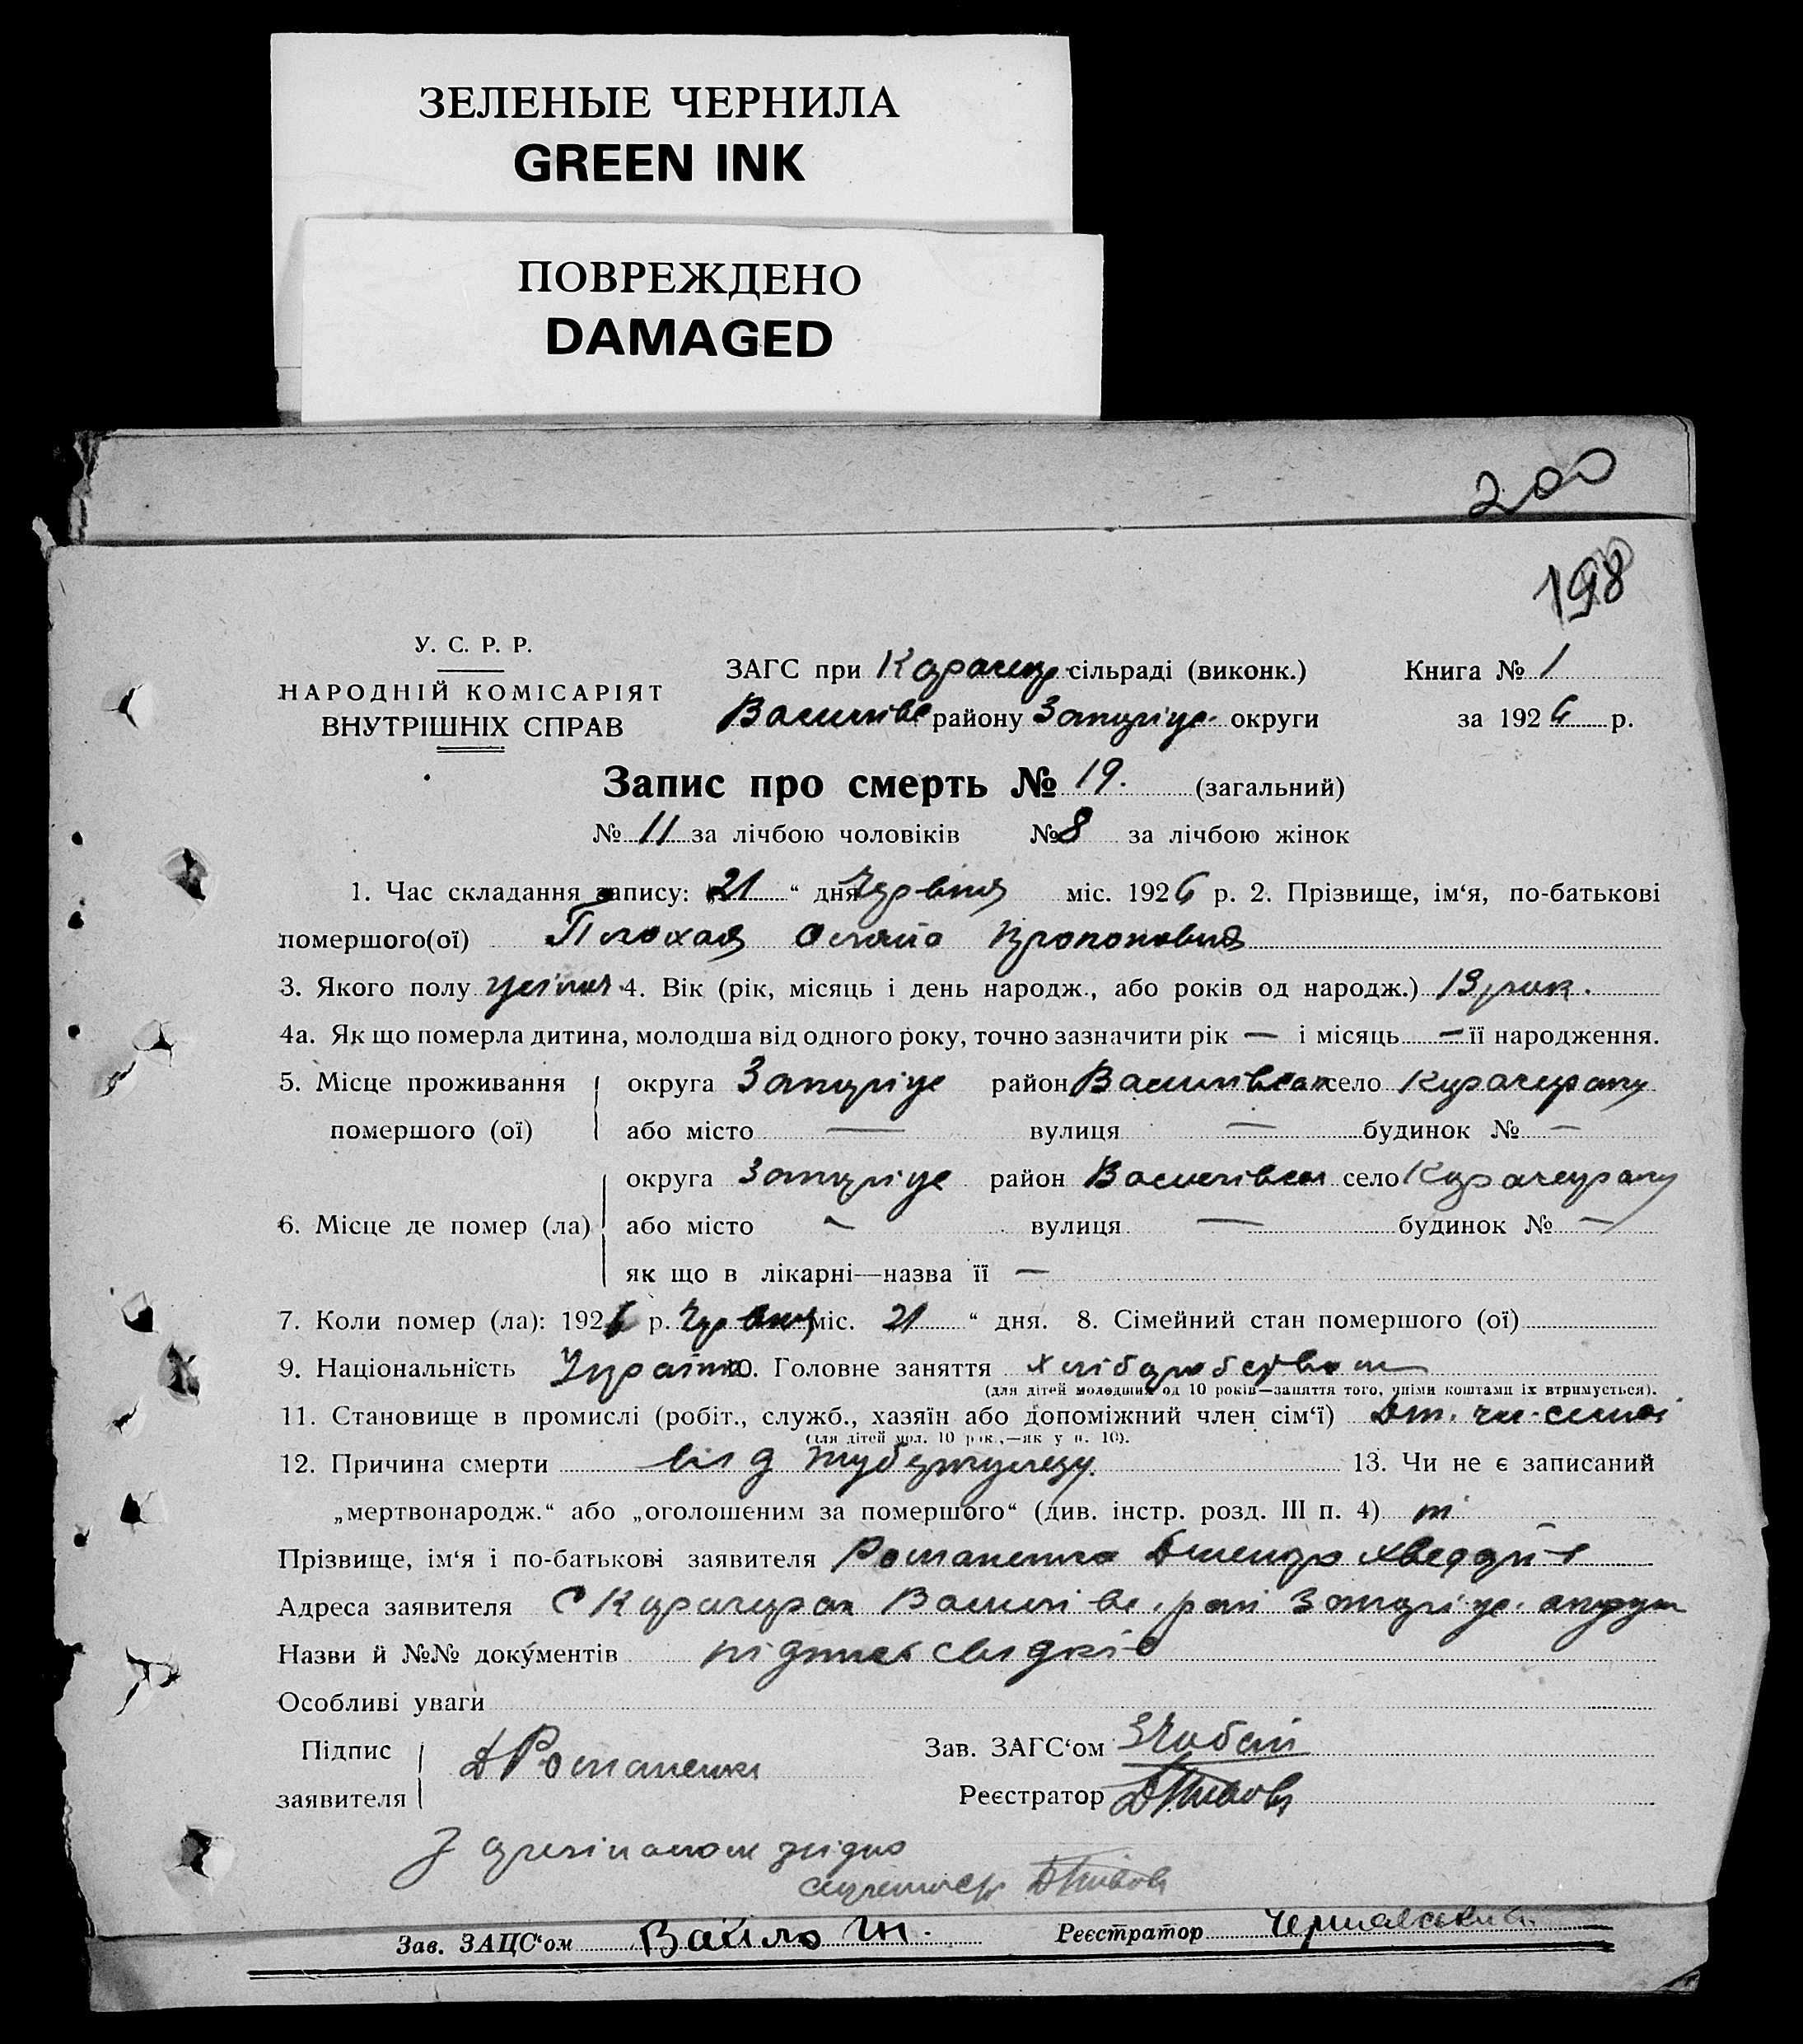 ЗЕЛЕНЫЕ ЧЕРНИЛА
GREEN INK
ПОВРЕЖДЕНО
DAMAGED
200
198
У. С. Р. Р.
НАРОДНІЙ КОМІСАРІЯТ
ВНУТРІШНІХ СПРАВ
ЗАГС при сільраді (виконк.)
Василівс району Запоріже округи
Книга № 1
за 1926 р.
Запис про смерть № 19. (загальний)
№ 11 за лічбою чоловіків № 8 за лічбою жінок
1. Час складання запису: „21“ дня Червня міс. 1926 р. 2. Прізвище, ім‘я, по-батькові
помершого(ої) Плохая
3. Якого полу 4. Вік (рік, місяць і день народж., або років од народж.) 19 рок.
4а. Як що померла дитина, молодша від одного року, точно зазначити рік — і місяць — її народження.
5. Місце проживання округа Запоріже район Василівськ село
помершого (ої) або місто — вулиця — будинок № —
округа Запоріже район Василівськ село
6. Місце де помер (ла) або місто — вулиця — будинок № —
як що в лікарні—назва її —
7. Коли помер (ла): 1926 р. Червня міс. 21 “ дня. 8. Сімейний стан помершого (ої)
9. Національність Україн 10. Головне заняття хліборобство
(для дітей молодших од 10 років—заняття того, чиїми коштами їх втримується).
11. Становище в промислі (робіт., служб., хазяїн або допоміжний член сім‘ї)
(для дітей мол. 10 рок.,—як у п. 10).
12. Причина смерти від туберкулезу. 13. Чи не є записаний
„мертвонародж.“ або „оголошеним за помершого“ (див. інстр. розд. III п. 4) ні
Прізвище, ім‘я і по-батькові заявителя Романенко
Адреса заявителя С Василів.
Назви й №№ документів підпис свидків
Особливі уваги
Підпис
заявителя
Д Романенко
Зав. ЗАГС‘ом
Реєстратор
З оригіналом згідно
Зав. ЗАЦС‘ом Вайло Реєстратор Чернявский